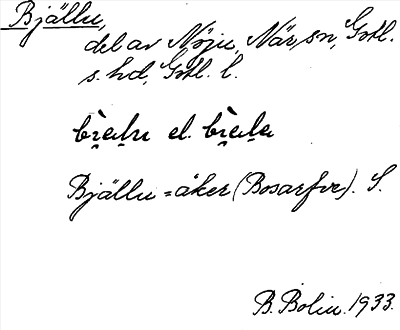 Bjällu,
del av Nöju, När, sn, Gotl.
s. hd, Gotl. l.
bi̯aḷu el. bi̯aḷa
Bjällu=åker (Bosarfve). S.
B. Bolin. 1933.